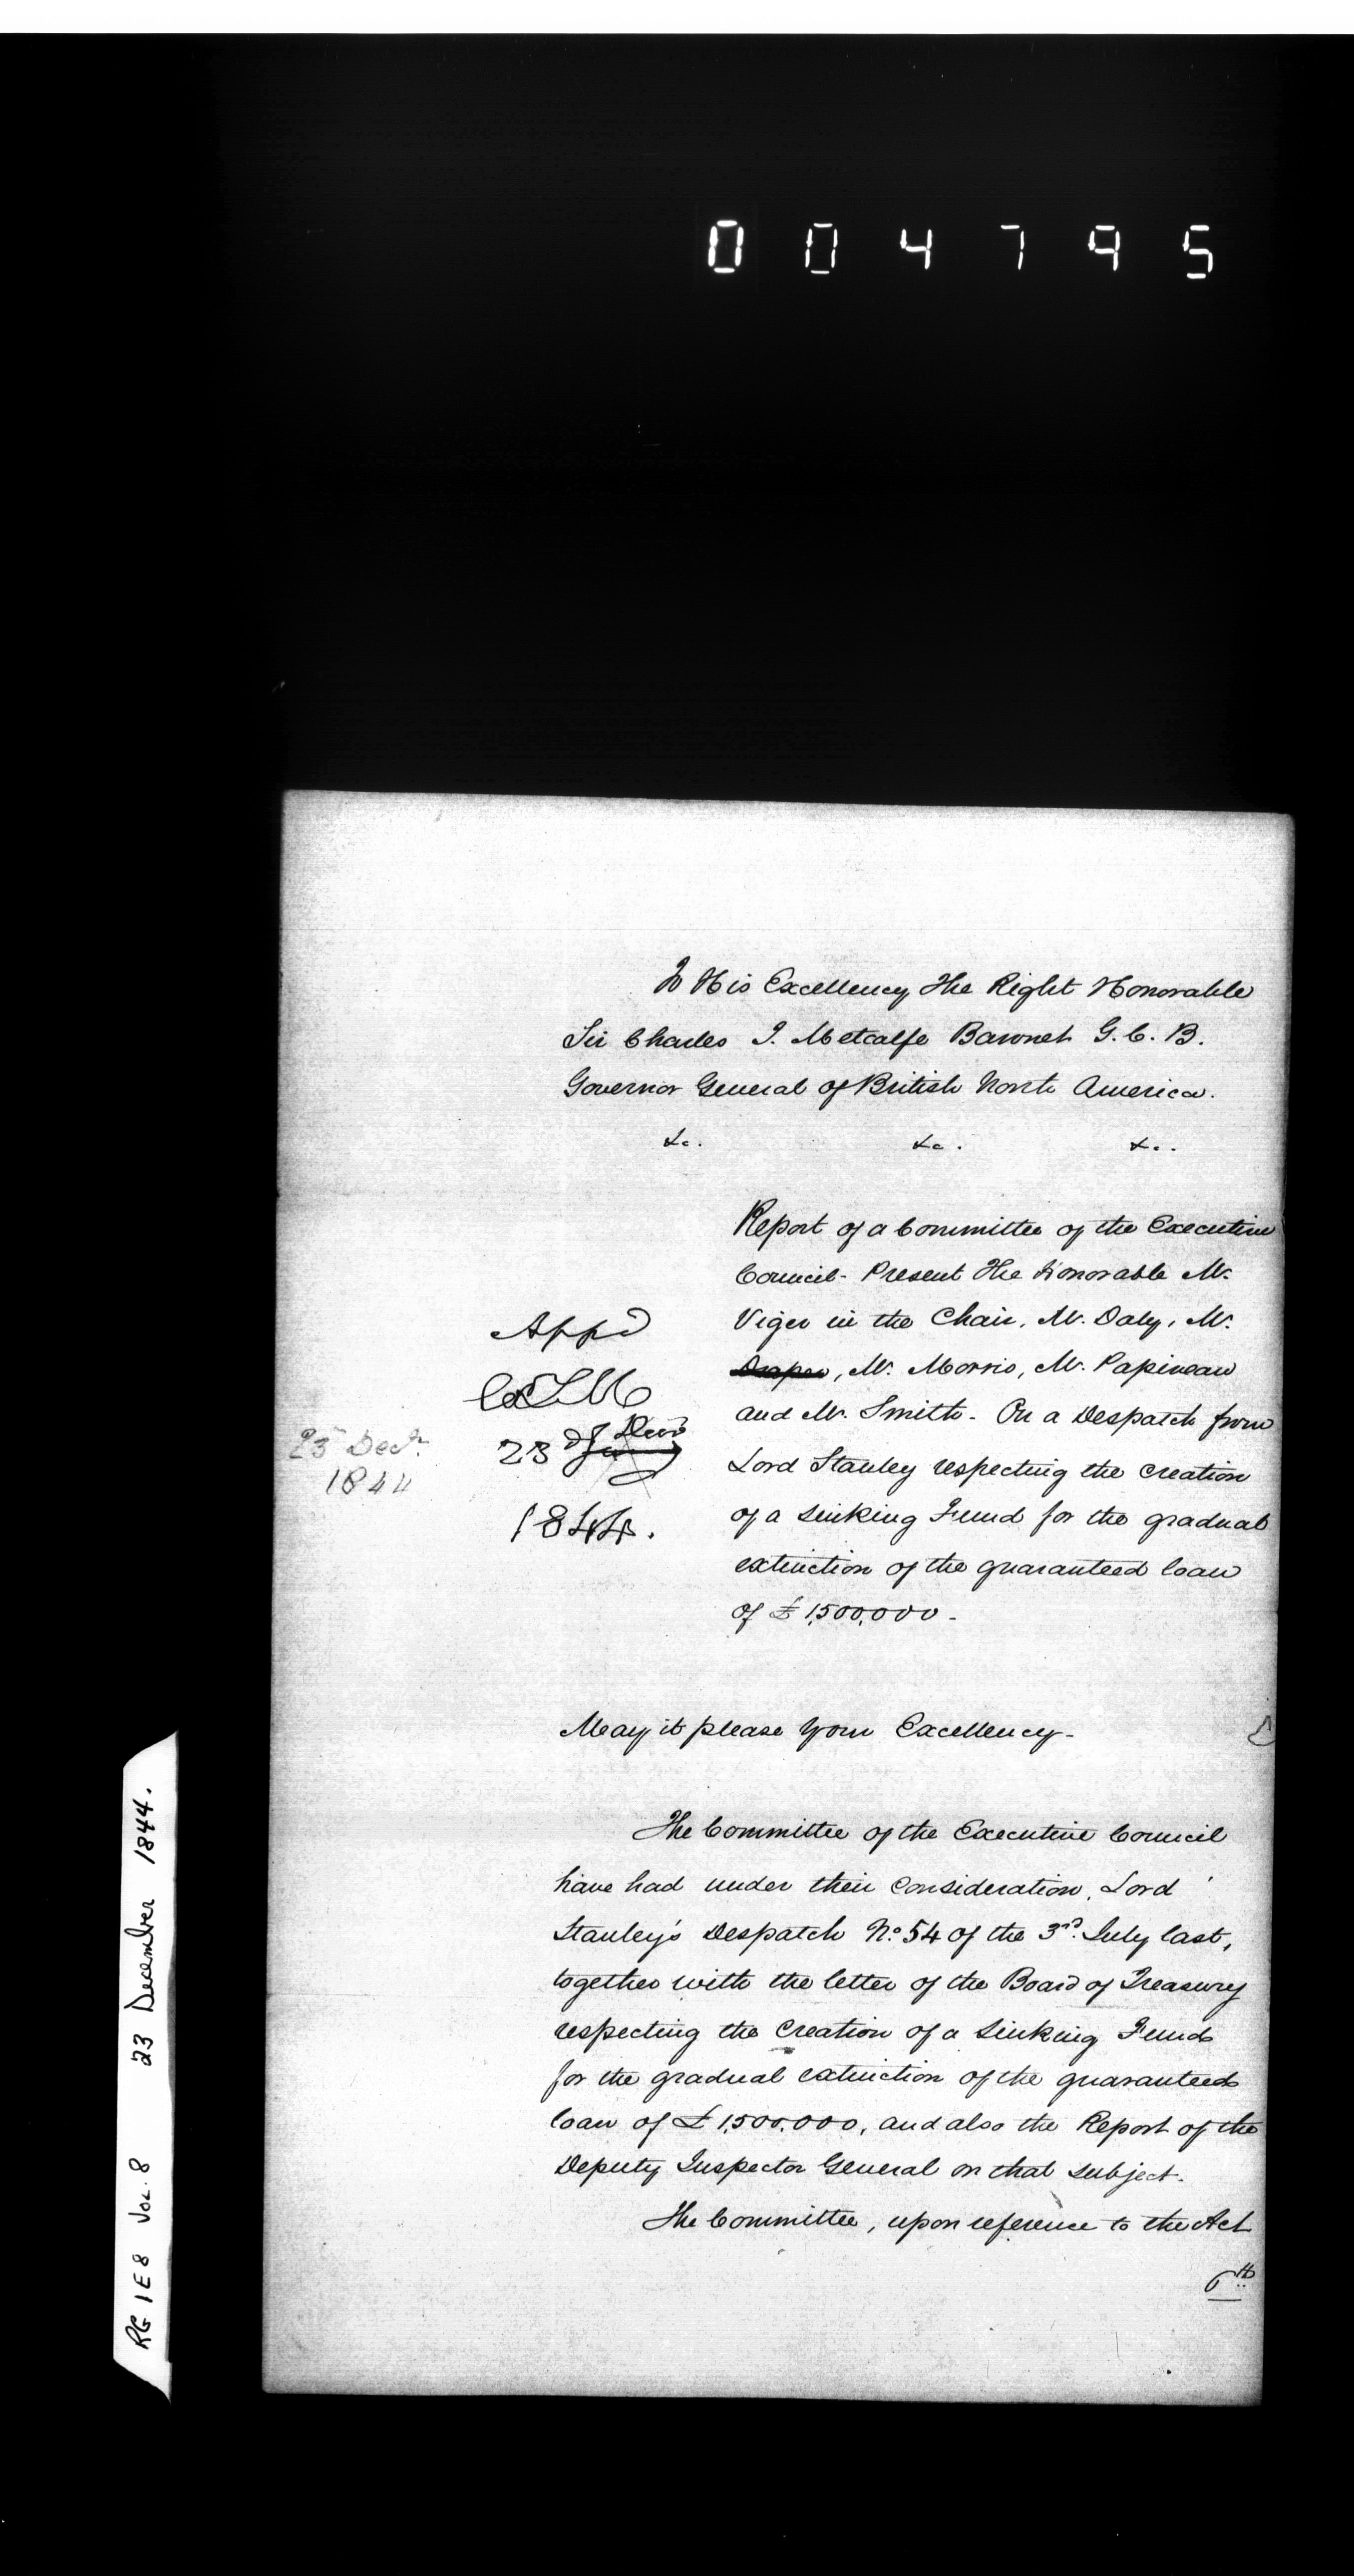 004795
To His Excellency The Right Honorable
Sir Charles T. Metcalfe Baronet G.C.B.
Governor General of British North America.
&c. &c. &c.
Report of a Committee of the Executive
Council - Present The Honorable Mr.
Viger in the Chair, Mr. Daly, Mr.
Draper, Mr. Morris, Mr. Papineau
and Mr. Smith - On a Despatch from
Lord Stanley respecting the creation
of a Sinking Fund for the gradual
extinction of the guaranteed loan
of £1,500,000 -
Appd
CTM
23d Decr
1844.
23 Decr.
1844
May it please Your Excellency -
The Committee of the Executive Council
have had under their consideration, Lord
Stanley's Despatch No. 54 of the 3rd. July last,
together with the letter of the Board of Treasury
respecting the creation of a Sinking Fund
for the gradual extinction of the guaranteed
loan of £1,500,000, and also the Report of the
Deputy Inspector General on that subject.
The Committee, upon reference to the Act
6th
RG 1 E 8 Vol. 8 23 December 1844.